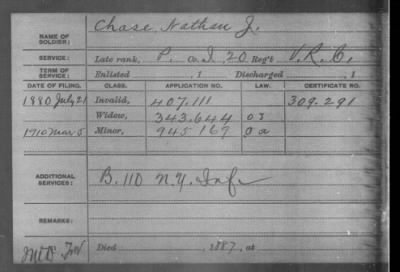 NAME OF SOLDIER: Chase, Nathan J.
SERVICE: Late rank, P. Co. I, 20 Reg't V.R.C.
TERM OF SERVICE: Enlisted , 1 Discharged , 1
DATE OF FILING. CLASS. APPLICATION NO. LAW. CERTIFICATE NO.
1880 July 21 Invalid, 407.111 309.291
Widow, 343.644
1910 Mar 5 Minor, 945.169
ADDITIONAL SERVICES: B. 110 N.Y. Inf.
REMARKS:
Died , 1887, at